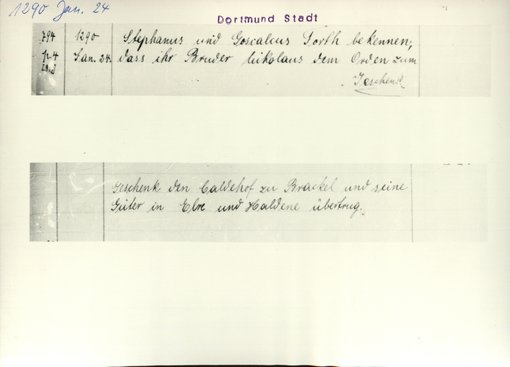 1290 Jan. 24
Dortmund Stadt
794 1290 Stephanus und Goscalcus Sorth bekennen,
Jan. 24. dass ihr Bruder Nikolaus dem Orden zum
Geschenk
Geschenk den Caldehof zu Brackel und seine
Güter in Elve und Haldene übertrug.